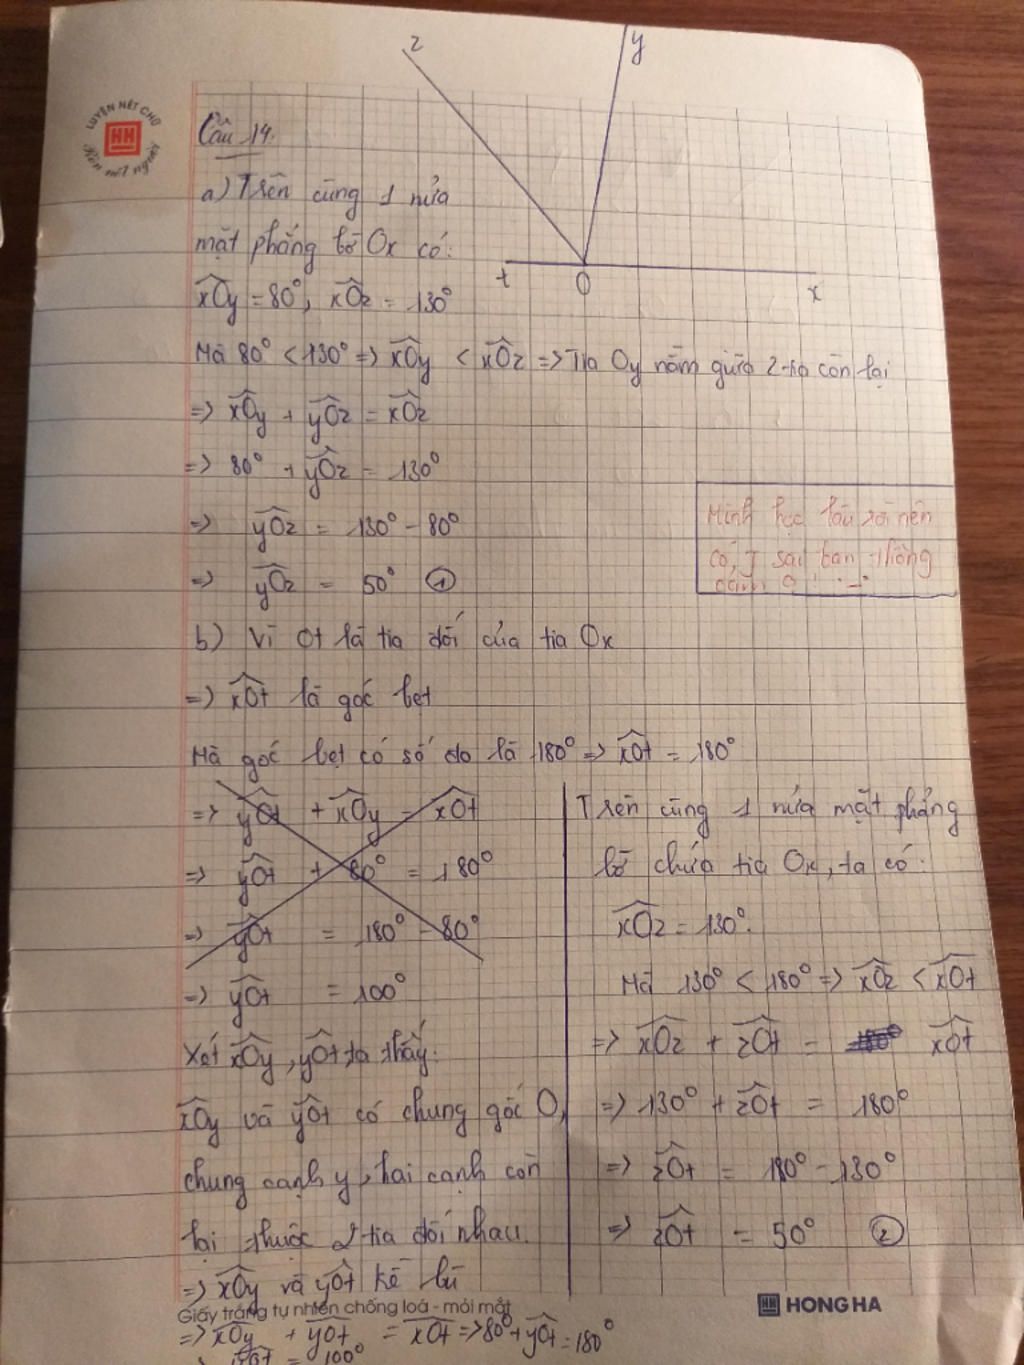 z
y
LUYỆN NÉT CHỮ
HH
Rèn nết người
Câu 14.
a) Trên cùng 1 nửa
mặt phẳng bờ Ox có:
t O x
xOy = 80°, xOz = 130°
Mà 80° < 130° => xOy < xOz => Tia Oy nằm giữa 2 tia còn lại
=> xOy + yOz = xOz
=> 80° + yOz = 130°
=> yOz = 130° - 80°
=> yOz = 50° ①
Mình học lâu rồi nên
có j sai bạn thông
cảm
b) Vì Ot là tia đối của tia Ox
=> xOt là góc bẹt
Mà góc bẹt có số đo là 180° => xOt = 180°
=> yOt + xOy = xOt
=> yOt + 80° = 180°
=> yOt = 180° - 80°
=> yOt = 100°
Xét xOy, yOt, ta thấy:
xOy và yOt có chung gốc O,
chung cạnh y, hai cạnh còn
lại thuộc 2 tia đối nhau.
=> xOy và yOt kề bù
=> xOy + yOt = xOt => 80° + yOt = 180°
=> yOt = 100°
Trên cùng 1 nửa mặt phẳng
bờ chứa tia Ox, ta có:
xOz = 130°.
Mà 130° < 180° => xOz < xOt
=> xOz + zOt = xOt
=> 130° + zOt = 180°
=> zOt = 180° - 130°
=> zOt = 50° ②
Giấy trắng tự nhiên chống loá - mỏi mắt
HH HONG HA